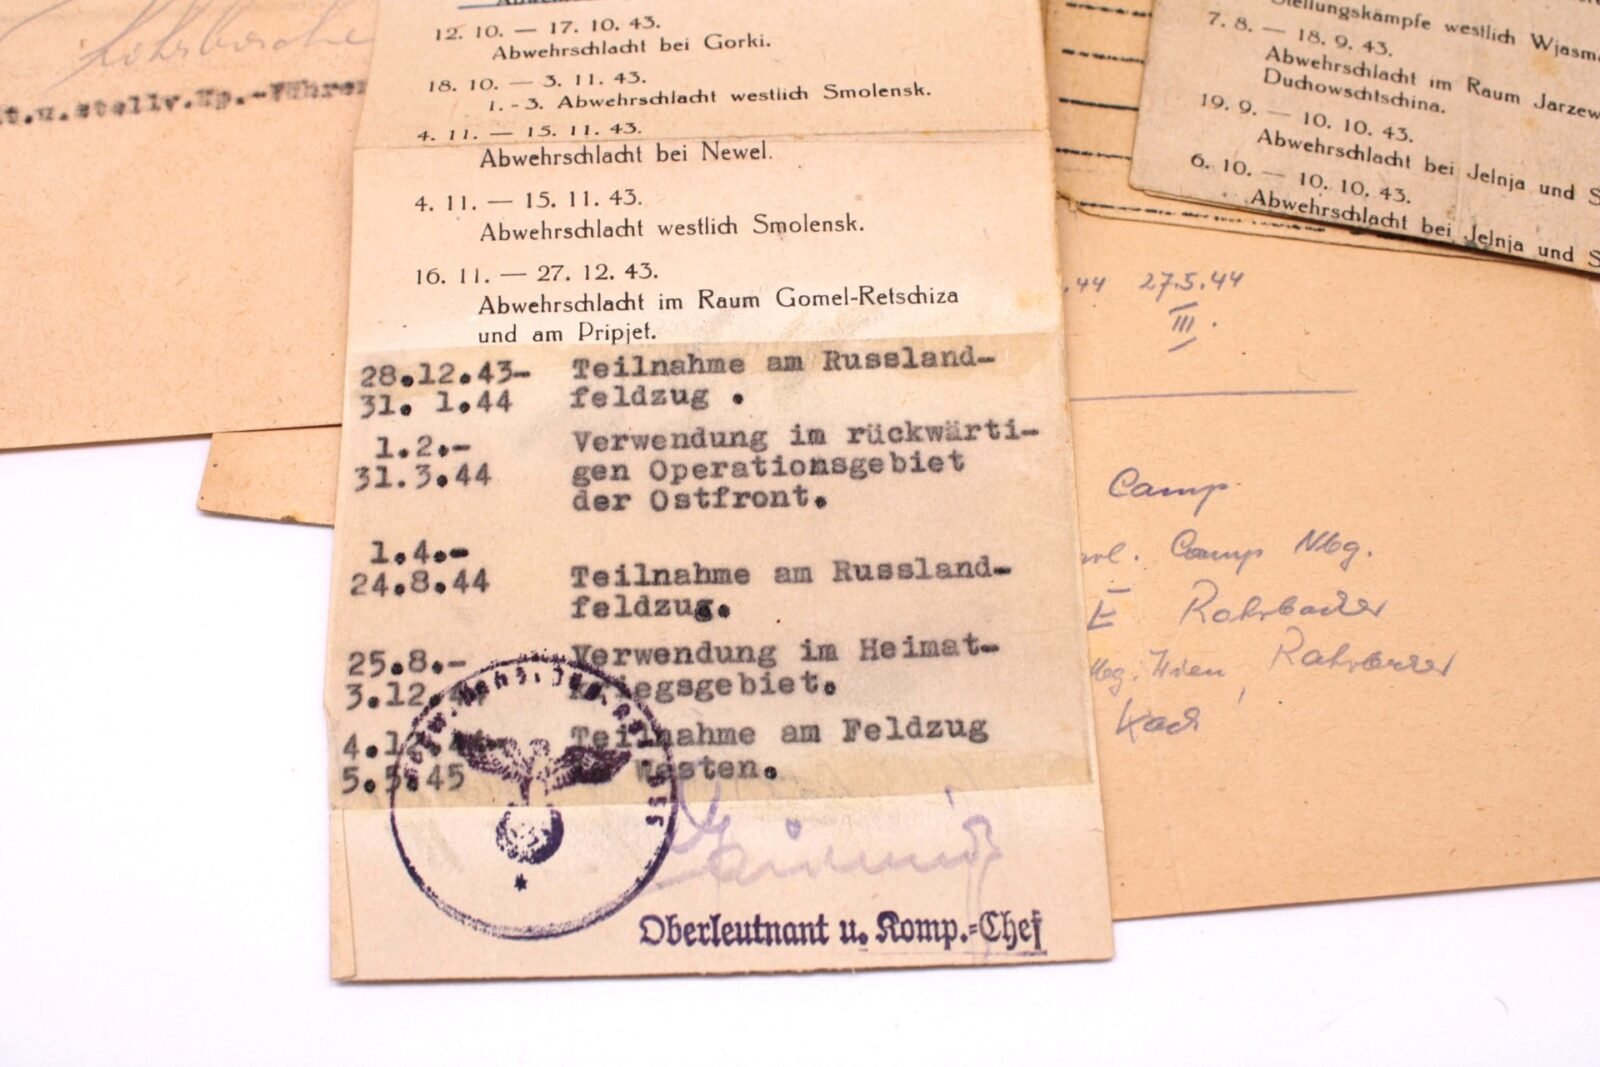 t.u.stellv.Kp.-Führer
12. 10. — 17. 10. 43.
Abwehrschlacht bei Gorki.
18. 10. — 3. 11. 43.
1. - 3. Abwehrschlacht westlich Smolensk.
4. 11. — 15. 11. 43.
Abwehrschlacht bei Newel.
4. 11. — 15. 11. 43.
Abwehrschlacht westlich Smolensk.
16. 11. — 27. 12. 43.
Abwehrschlacht im Raum Gomel-Retschiza
und am Pripjet.
28.12.43- Teilnahme am Russland-
31. 1.44 feldzug .
1.2.- Verwendung im rückwärti-
31.3.44 gen Operationsgebiet
der Ostfront.
1.4.-
24.8.44 Teilnahme am Russland-
feldzug.
25.8.- Verwendung im Heimat-
3.12.44 kriegsgebiet.
4.12.44- Teilnahme am Feldzug
5.5.45 Westen.
Oberleutnant u. Komp.-Chef
Stellungskämpfe westlich Wjasm
7. 8. — 18. 9. 43.
Abwehrschlacht im Raum Jarzew
Duchowschtschina.
19. 9. — 10. 10. 43.
Abwehrschlacht bei Jelnja und S
6. 10. — 10. 10. 43.
Abwehrschlacht bei Jelnja und S
.44 27.5.44
III.
Camp
Camp Nbg.
E Rohrbacher
Rohrbacher